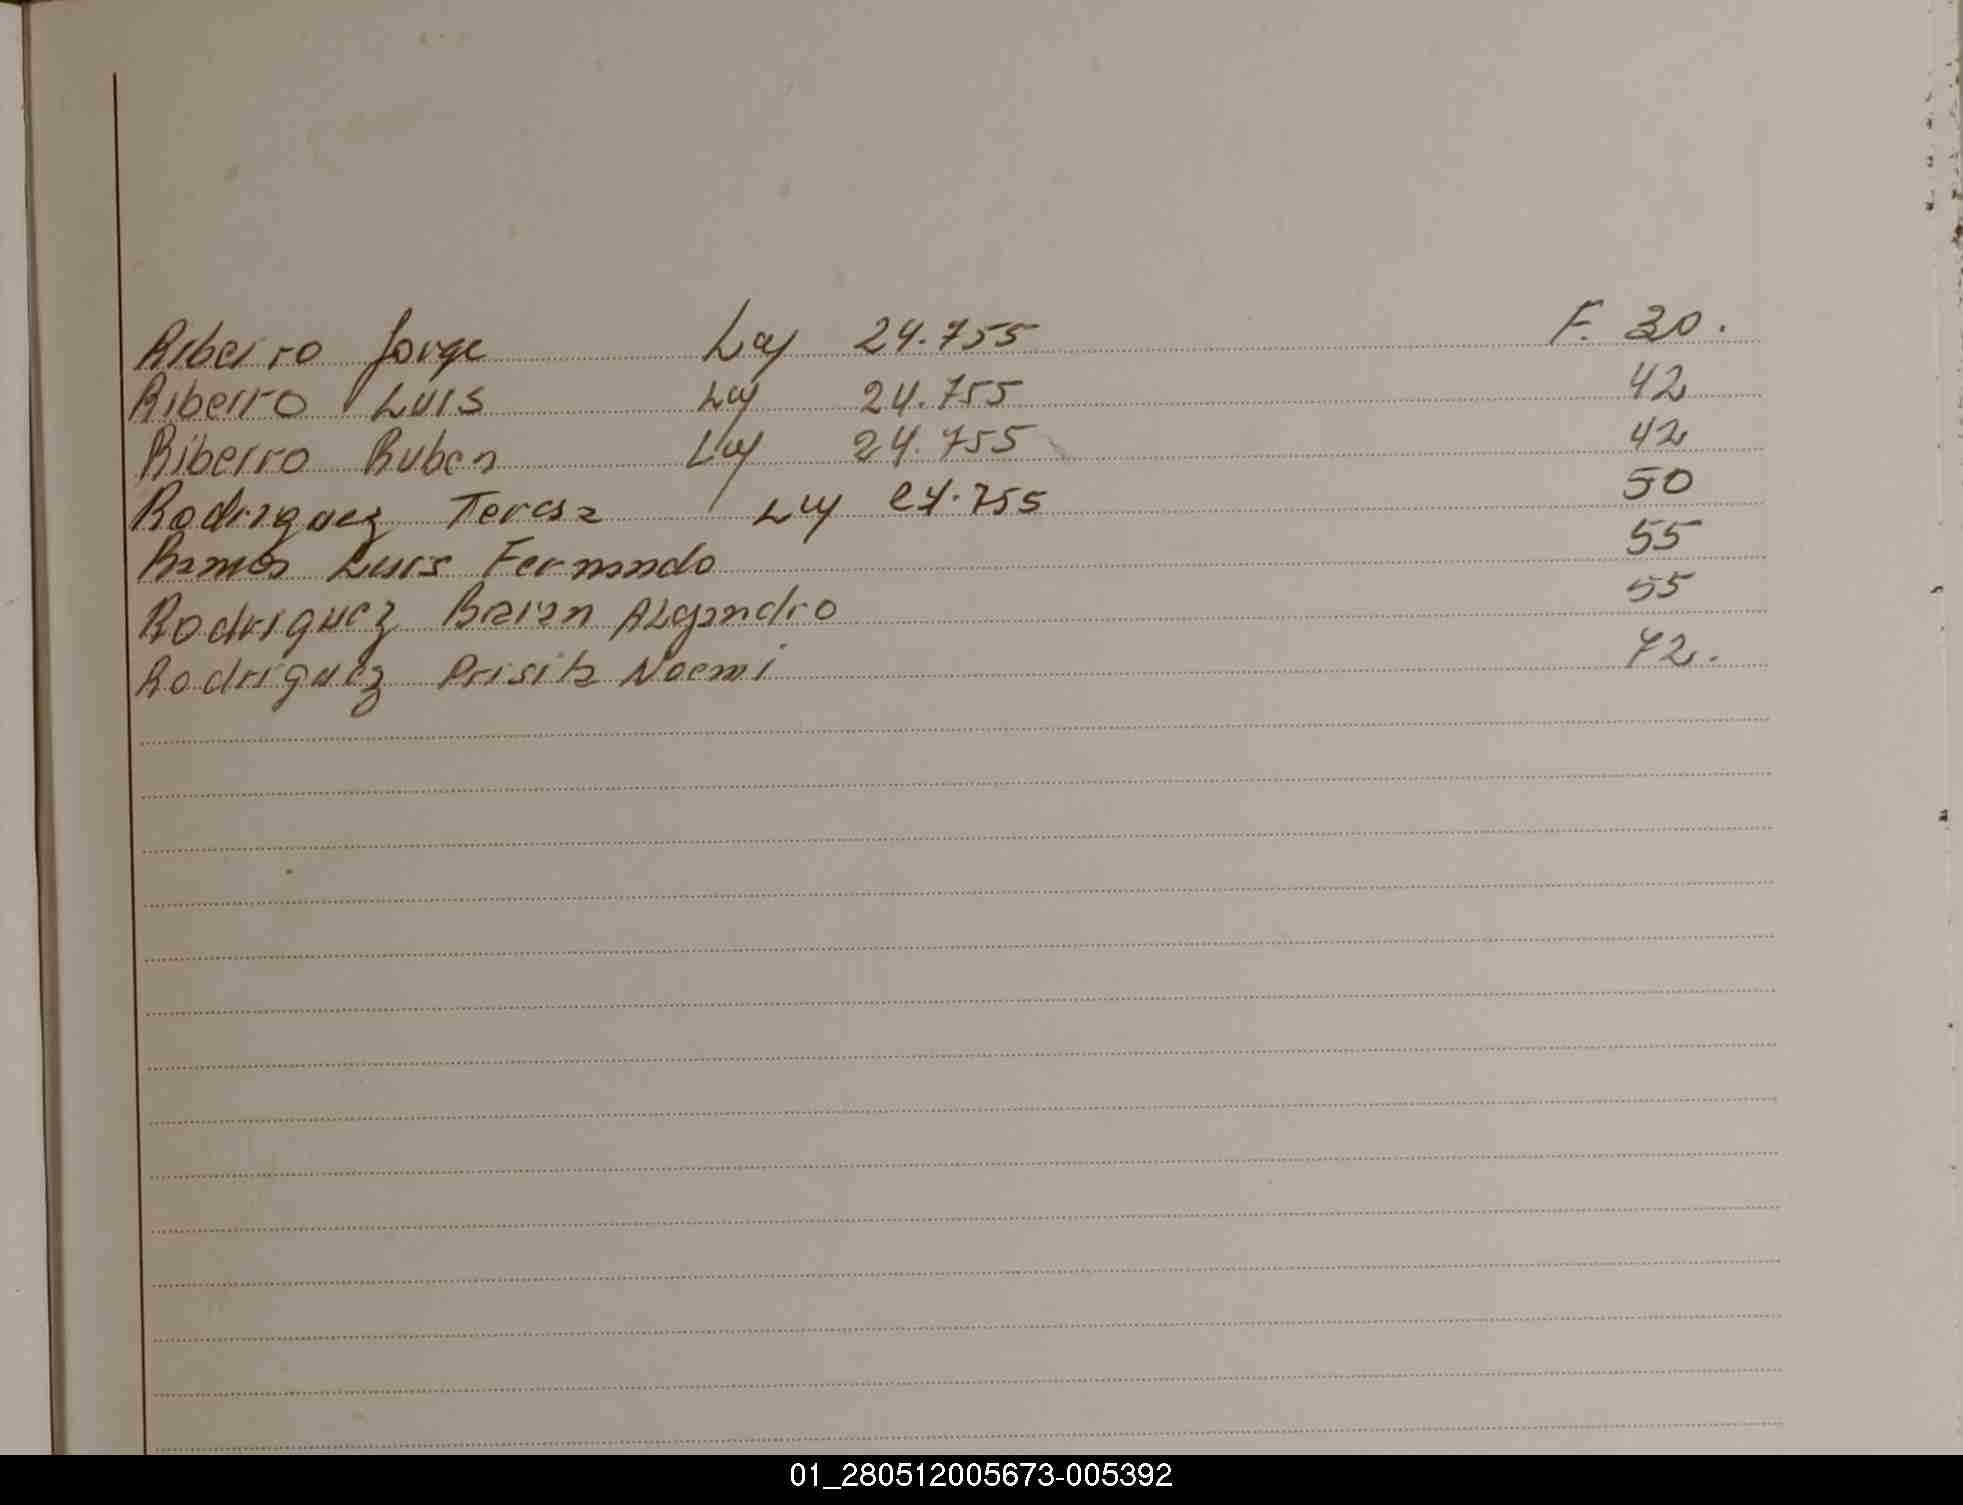 Ribeiro Jorge Ley 24.755 F. 30.
Ribeiro Luis Ley 24.755 42
Ribeiro Ruben Ley 24.755 42
Rodriguez Teresa Ley 24.755 50
Ramos Luis Fernando 55
Rodriguez Braian Alejandro 55
Rodriguez Noemi 72.
01_280512005673-005392